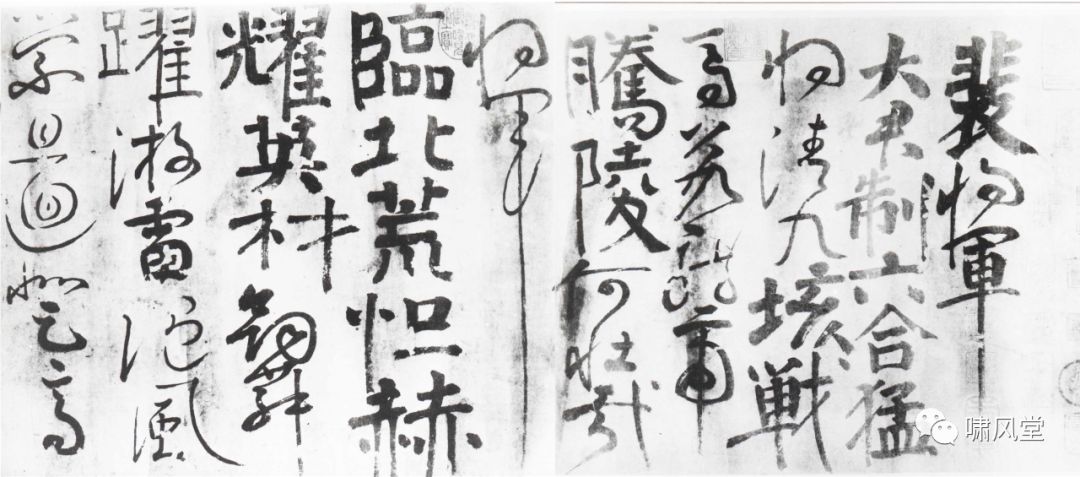 裴將軍
大君制六合猛
將清九垓戰
馬若龍虎
騰陵何壯哉
將軍
臨北荒怛赫
耀英材劍舞
躍游雷隨風
縈且迴登高
啸风堂